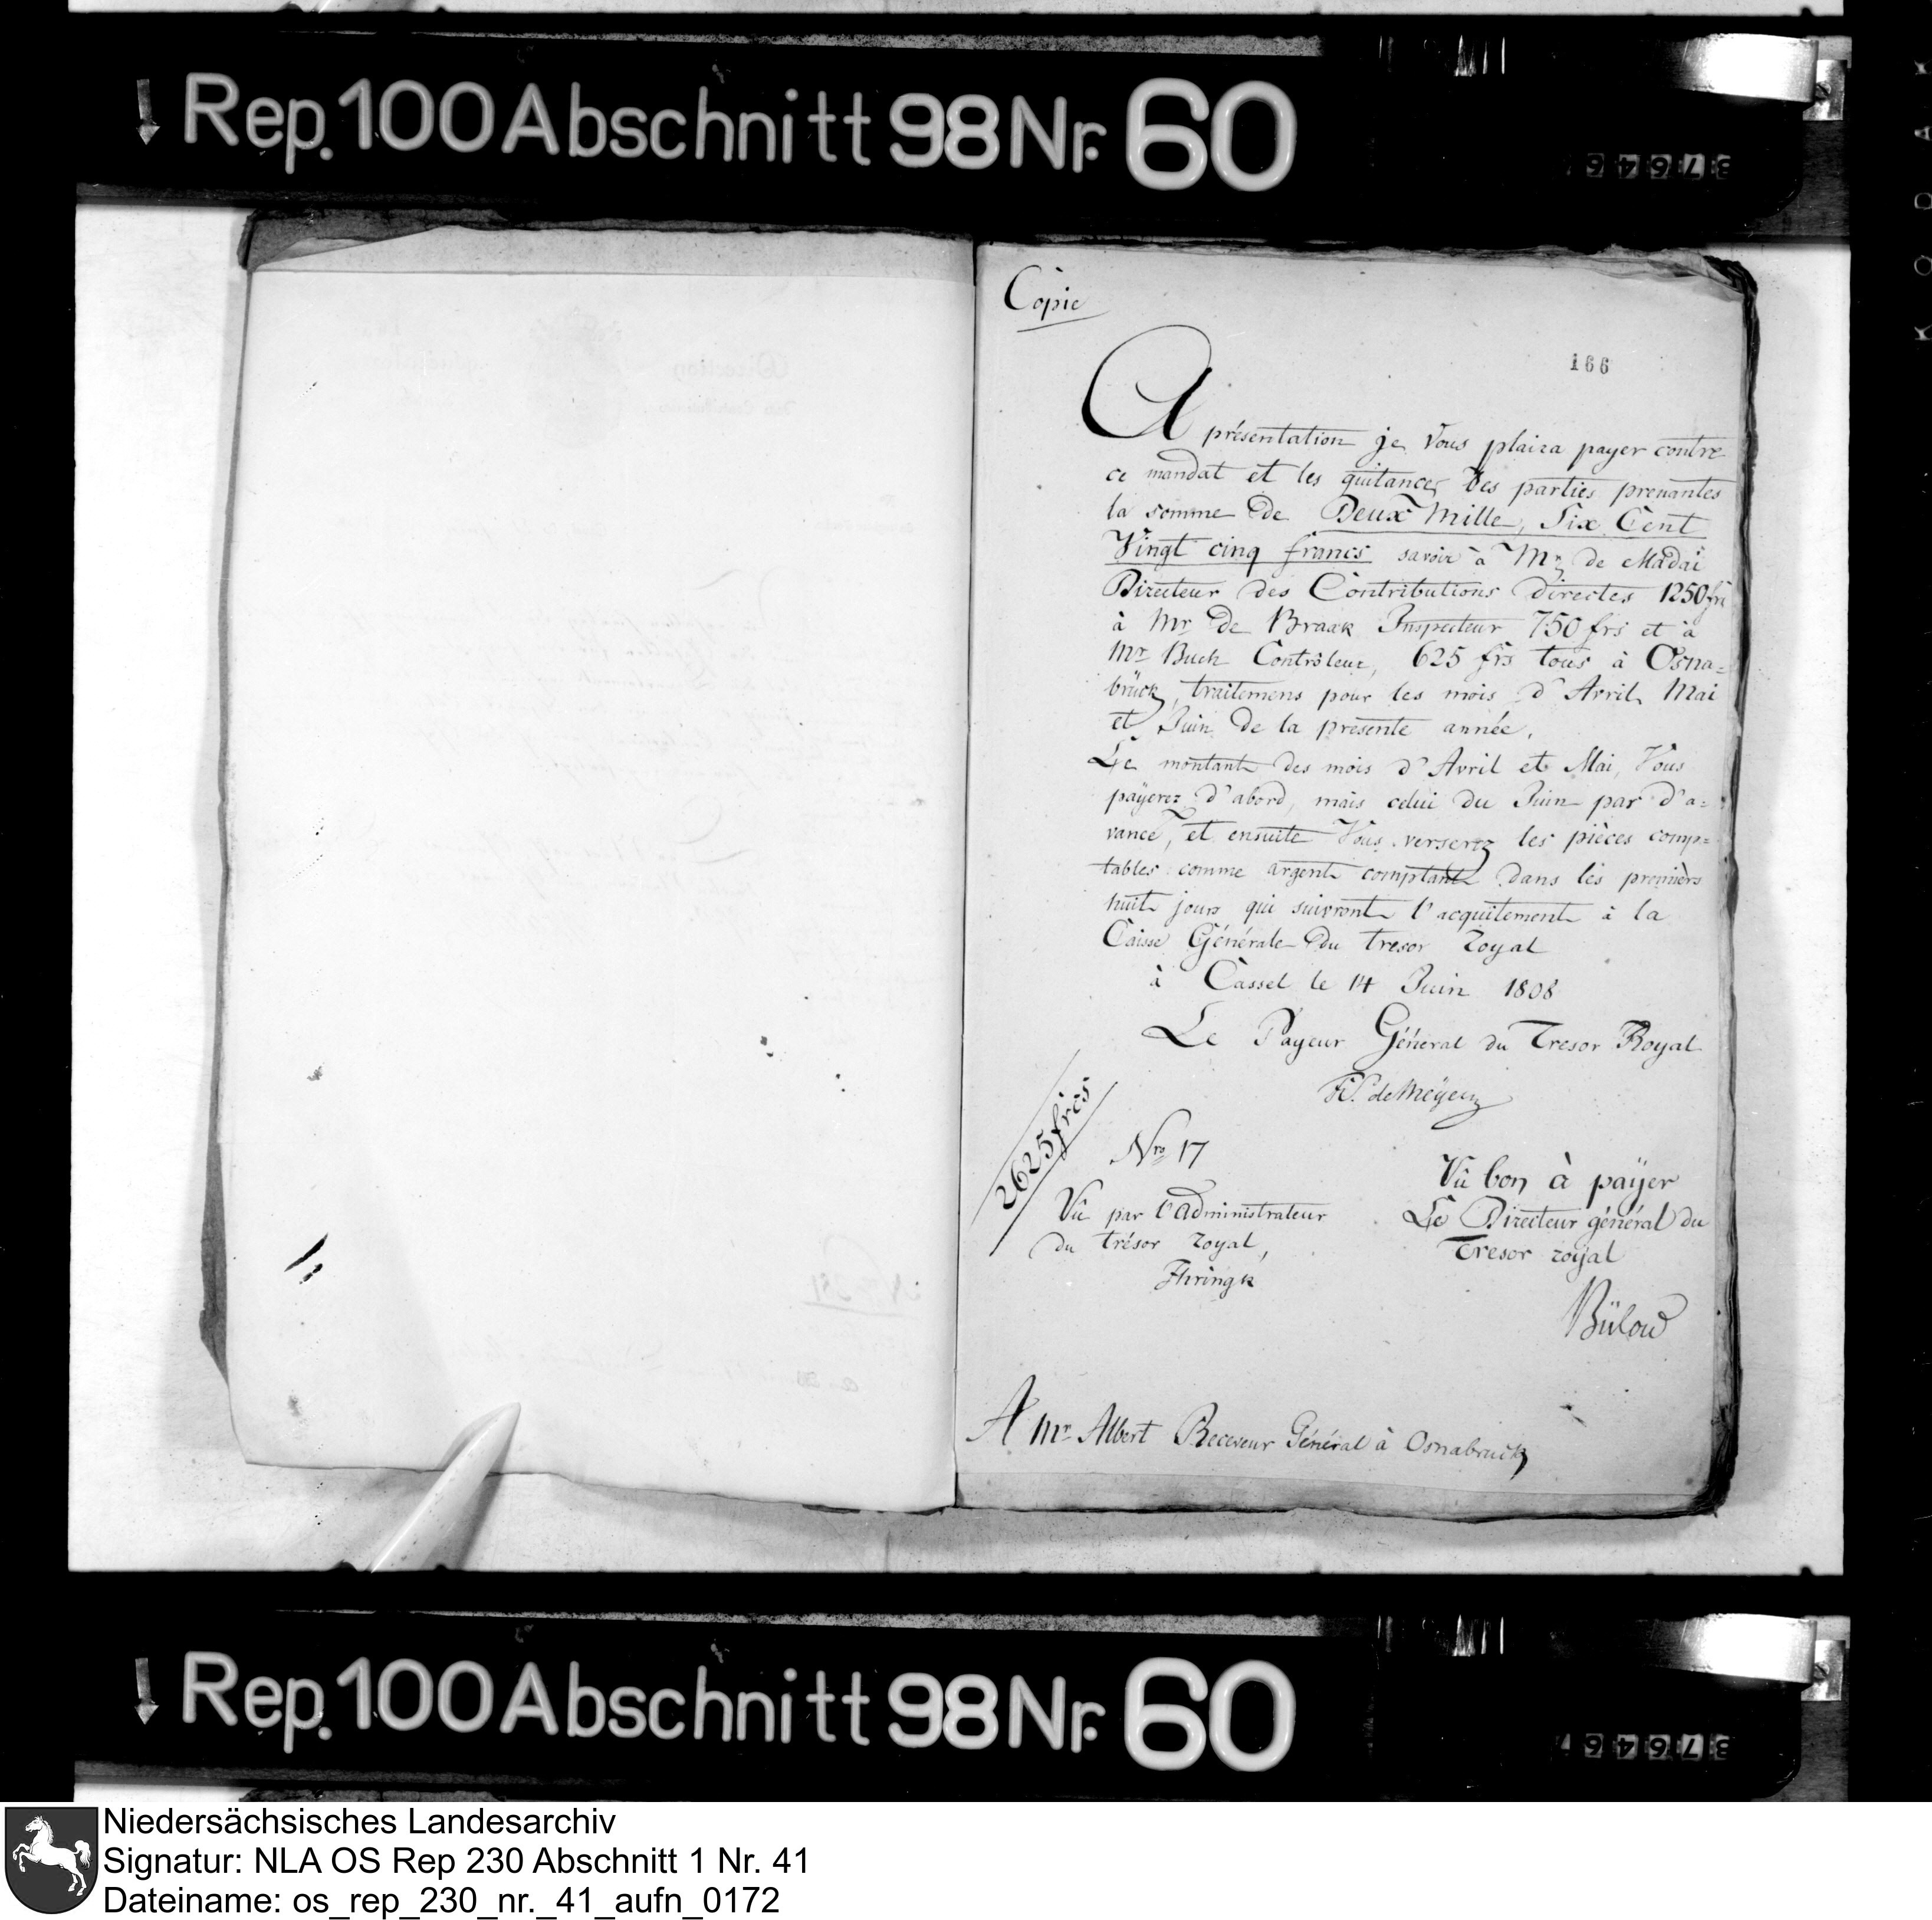 Rep. 100 Abschnitt 98 Nr. 60
37646
KODAK
Copie
166
A présentation je Vous plaira payer contre
ce mandat et les quitances des parties prenantes
la somme de Deux Mille, Six Cent
Vingt cinq francs savoir à Mr de Madai
Directeur des Contributions directes 1250 frs
à Mr de Braak Inspecteur 750 frs et à
Mr Buch Contrôleur, 625 frs tous à Osna=
brück, traitemens pour les mois d'Avril Mai
et Juin de la presente année.
Le montant des mois d'Avril et Mai, Vous
payerez d'abord, mais celui du Juin par d'a=
vance, et ensuite Vous verserez les pièces comp=
tables comme argent comptant dans les premièrs
huit jours qui suivront l'acquitement à la
Caisse Générale du tresor royal
à Cassel le 14 Juin 1808
Le Payeur Général du Tresor Royal
de Meyern
2625 frcs
Nro 17
Vû par l'administrateur
du trésor royal,
Vû bon à payer
Le Directeur général du
Tresor royal
Bülow
A Mr Albert Receveur Général à Osnabruck
Rep. 100 Abschnitt 98 Nr. 60
37646
Niedersächsisches Landesarchiv
Signatur: NLA OS Rep 230 Abschnitt 1 Nr. 41
Dateiname: os_rep_230_nr._41_aufn_0172